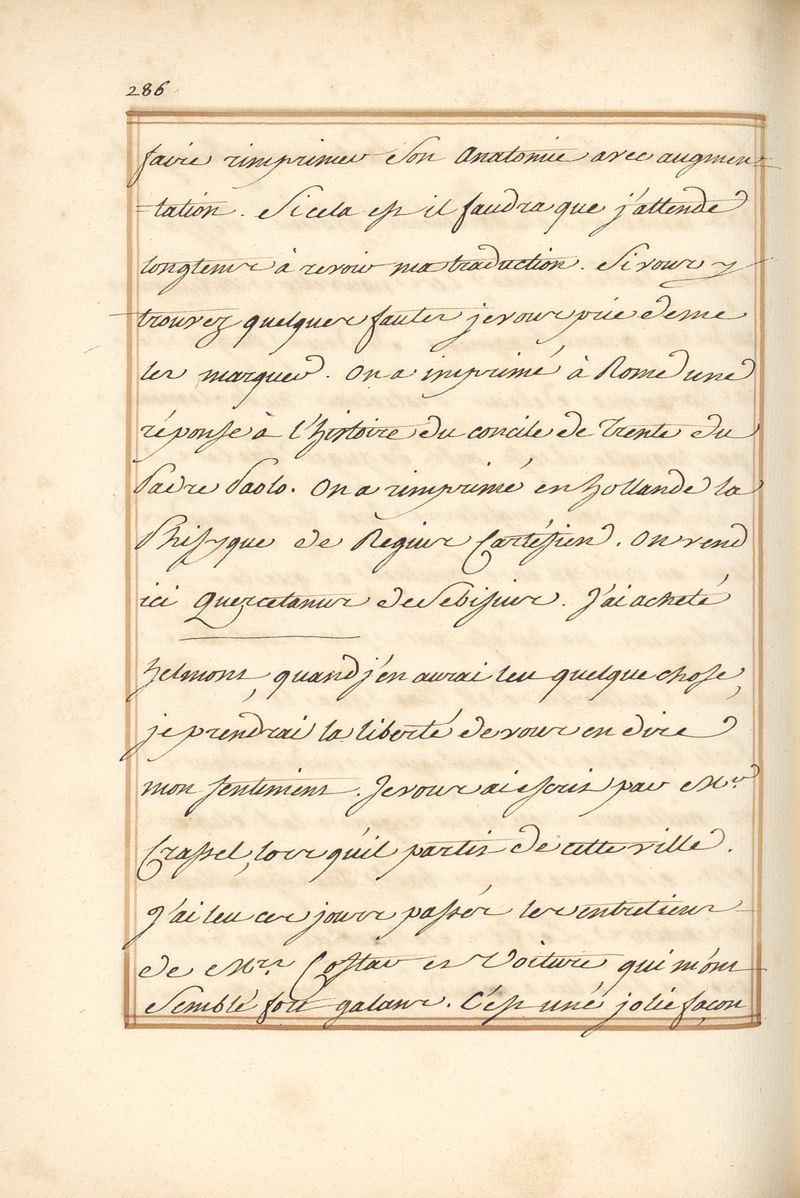 286
faire rimprimer son Anatomie avec augmen-
-tation. Si cela est il faudra que j'attende
longtems à revoir ma traduction. Si vous y
trouvez quelques fautes je vous prie de me
les marquer. On a imprimé à Rome une
réponse à l'histoire du concile de Trente du
Padre Paolo. On a rimprimé en Hollande la
Phisyque de Regius Cartésien. On vend
ici Quercetanus de Sebisius. J'ai acheté
Helmont, quand j'en aurai leu quelque chose,
je prendrai la liberté de vous en dire
mon sentiment. Je vous ai escrit par Mr.
Crassel, lors qu'il partit de cette ville.
J'ai leu ces jours passés les entretiens
de Mrs. Costar et Voiture qui m'ont
semblé fort galans. C'est une jolie façon